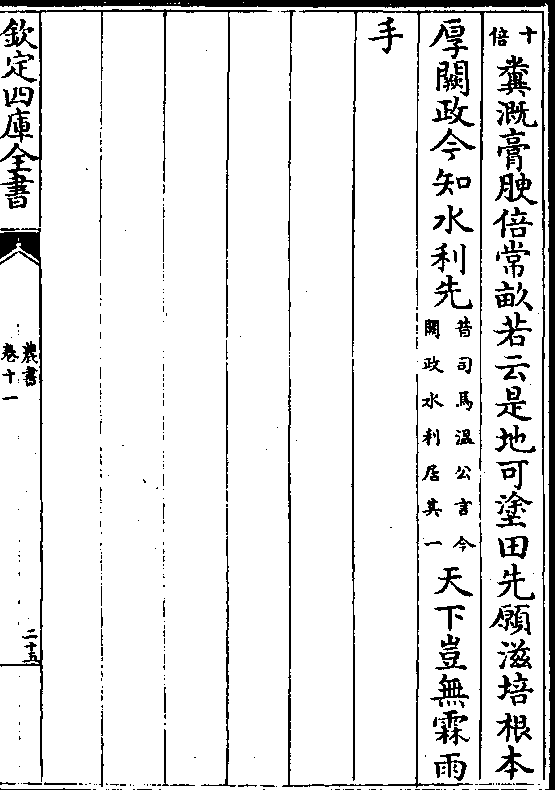 十倍糞溉膏腴倍常畝若云是地可塗田先願滋培根本
厚闕政今知水利先昔司馬溫公言今闕政水利居其一天下豈無霖雨
手
欽定四庫全書
農書
卷十一
二十五